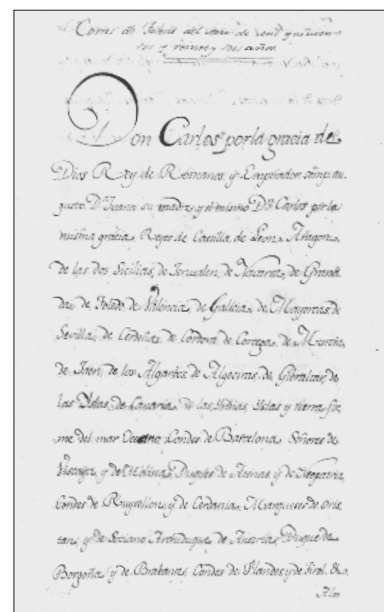 Cortes de Toledo del año de mil y quinien-
tos y veinte y dos años
Don Carlos por la gracia de
Dios Rey de Romanos, y Emperador semp. au-
gusto Dª Juana su madre, y el mismo Dⁿ Carlos por la
misma gracia, Reyes de Castilla, de Leon, Aragon,
de las dos Sicilias, de Jerusalen, de Navarra, de Grana-
da, de Toledo, de Valencia, de Galicia, de Mayorcas, de
Sevilla, de Cerdeña, de Cordova, de Corcega, de Murcia,
de Jaen, de los Algarbes, de Algeciras, de Gibraltar, de
las Yslas, de Canaria, de las Yndias, Yslas y tierra fir-
me del mar Occeano, Condes de Barcelona, Señores de
Vizcaya, y de Molina, Duques de Atenas y de Neopatria,
Condes de Ruysellon, y de Cerdania, Marqueses de Oris-
tan, y de Gociano Archiduque de Austria, Duque de
Borgoña, y de Brabante, Condes de Flandes y de Tirol, &c.